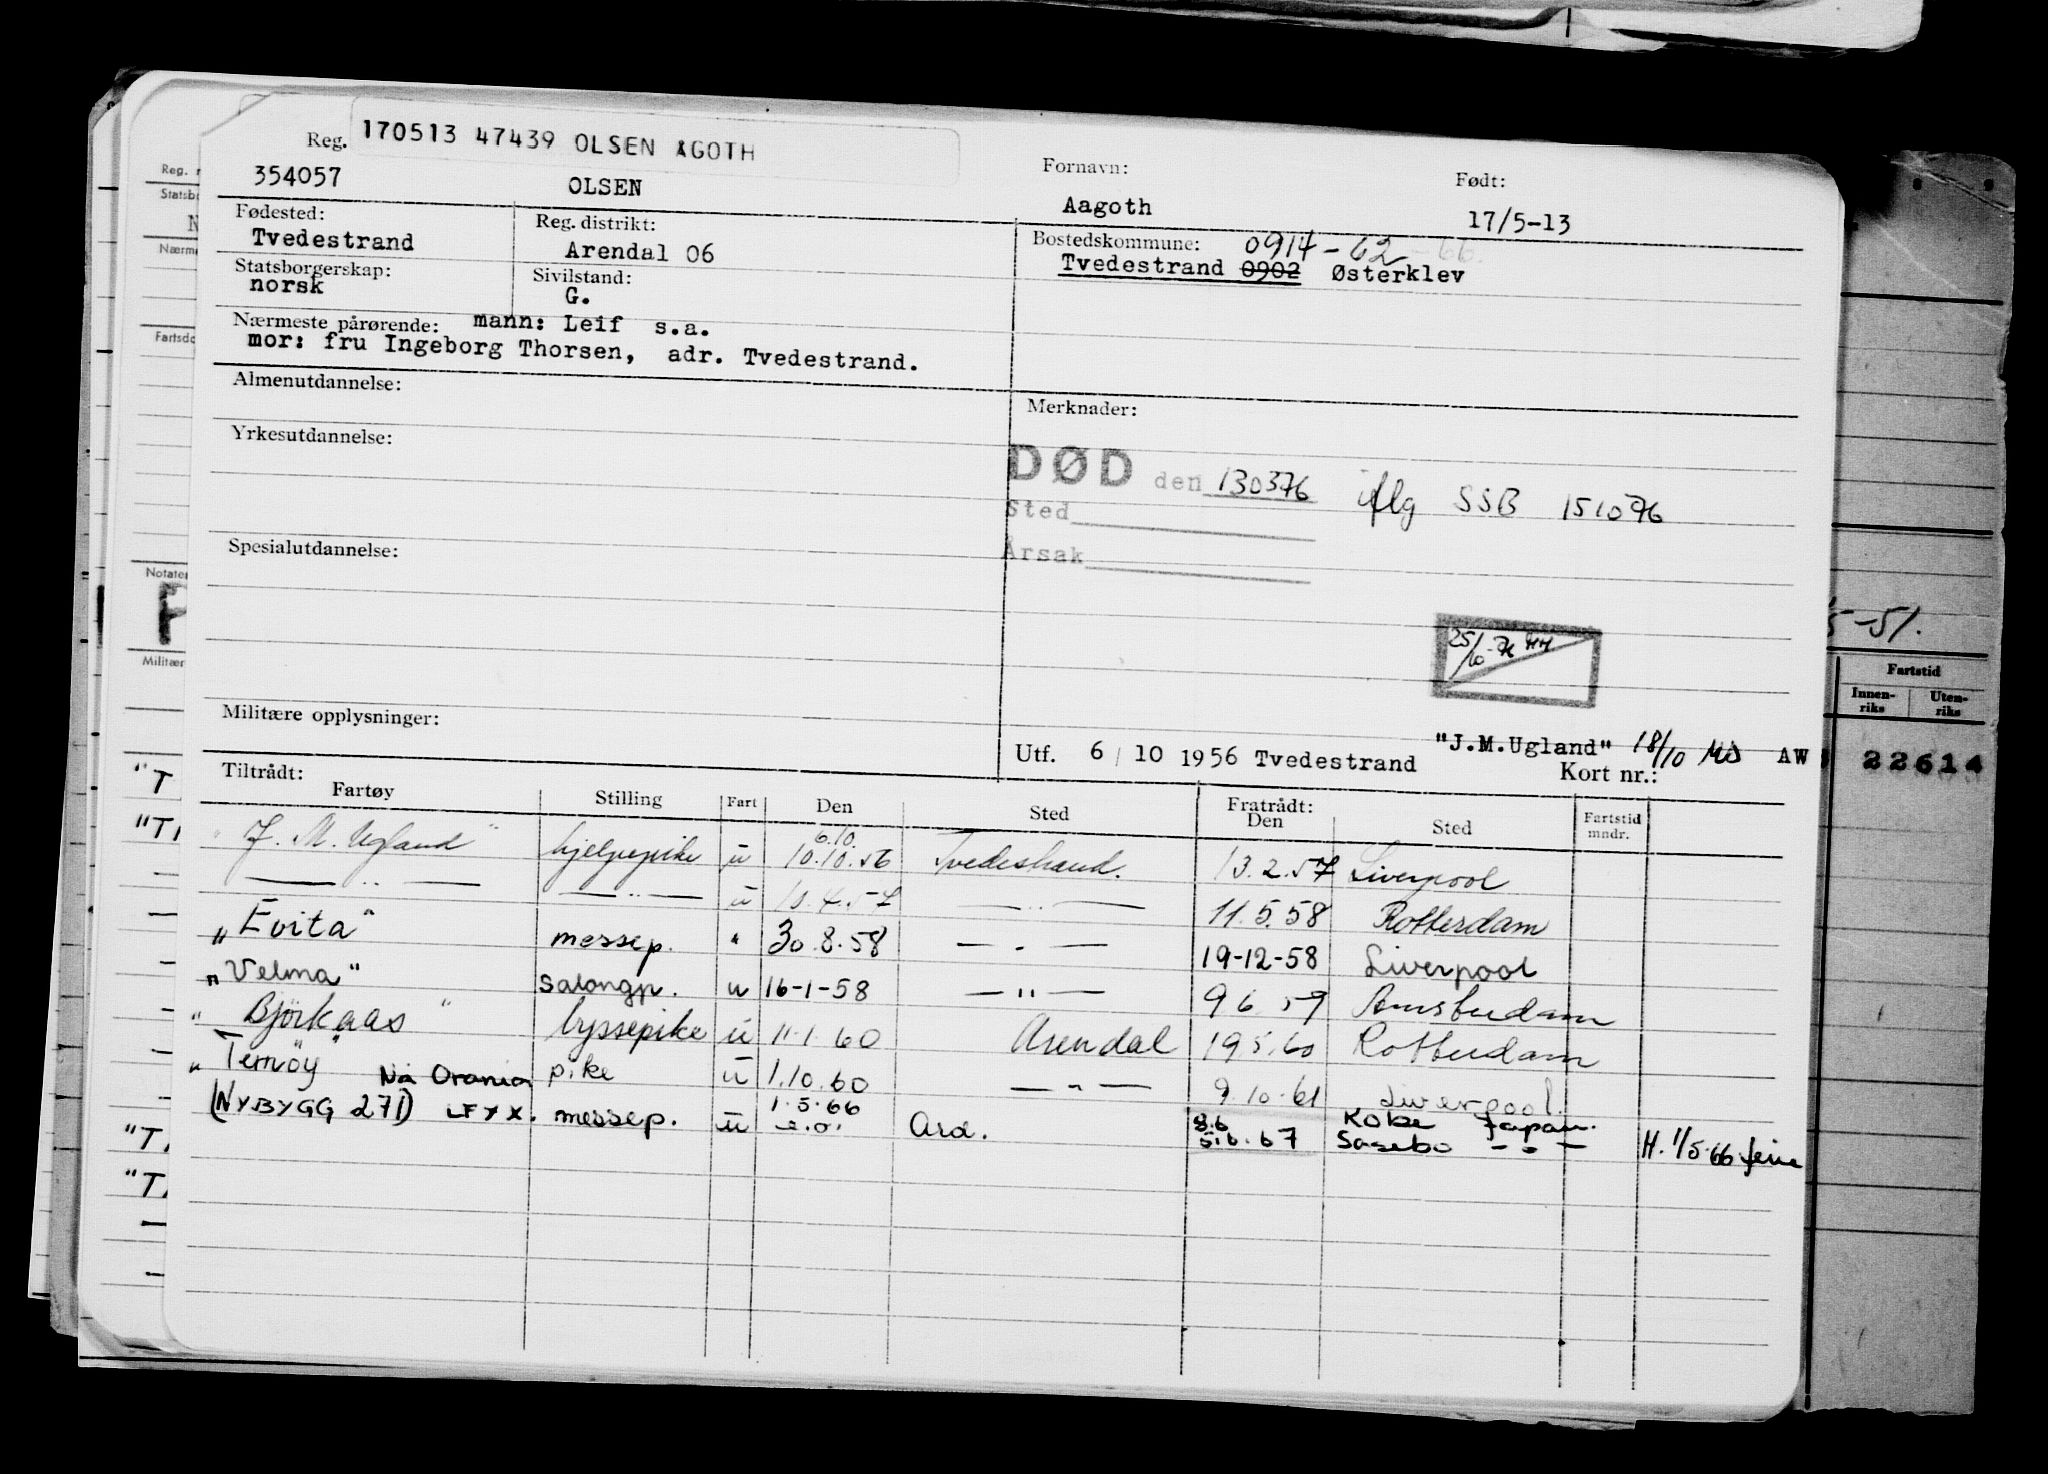 Reg. 170513 47439 OLSEN AGOTH
354057 OLSEN
Fornavn: Aagoth
Født: 17/5-13
Fødested: Tvedestrand
Reg. distrikt: Arendal 06
Bostedskommune: 0914-62-66.
Tvedestrand 0902 Østerklev
Statsborgerskap: norsk
Sivilstand: G.
Nærmeste pårørende: mann: Leif s.a.
mor: fru Ingeborg Thorsen, adr. Tvedestrand.
Almenutdannelse:
Merknader:
Yrkesutdannelse:
DØD den 130376 iflg SSB 151076
Sted
Årsak
Spesialutdannelse:
25/10-76 HH
Militære opplysninger:
Utf. 6/10 1956 Tvedestrand "J.M.Ugland" 18/10 AW
Kort nr.:
Tiltrådt: Fratrådt:
Fartøy Stilling Fart Den Sted Den Sted Fartstid mndr.
"J. M. Ugland" hjelpepike u 6.10. 10.10.56 Tvedestrand. 13.2.57 Liverpool
— " — — " — u 10.4.57 — " — 11.5.58 Rotterdam
"Evita" messep. " 30.8.58 — " — 19-12-58 Liverpool
"Velma" Salongp. u 16-1-58 — " — 9 6 59 Amsterdam
"Björkaas" byssepike u 11.1.60 Arendal 19 5.60 Rotterdam
"Ternöy" pike u 1.10.60 — " — 9.10.61 Liverpool.
Nå Orania
(NYBYGG 271) LFYX. messep. u 1.5.66 Ard. 8.6 Kobe Japan.
5.6.67 Sasebo - " - H. 1/5.66
Reg. n
Statsb
N
Nærm
Fartsdo
Notater
Militær
"T
"T
"T
5-51.
Fartstid
Innen-riks Uten-riks
22614